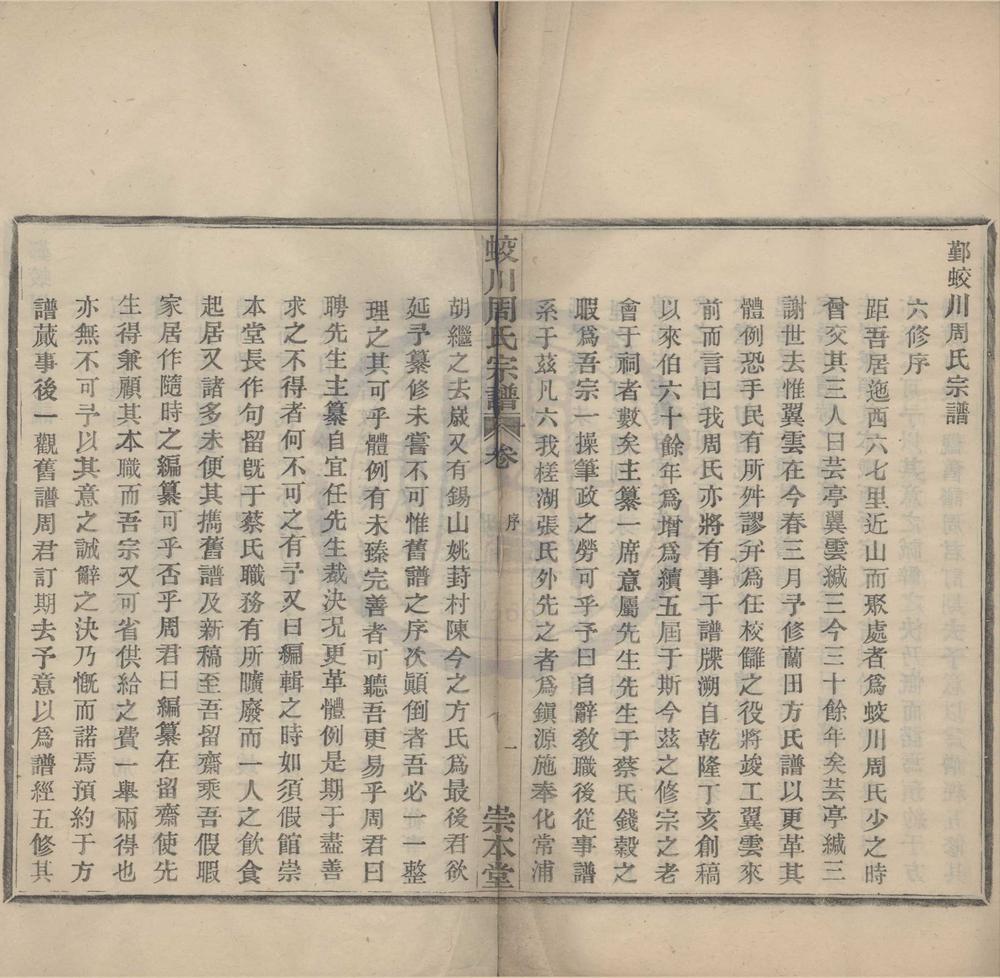 鄞蛟川周氏宗譜
六修序
距吾居迤西六七里近山而聚處者爲蛟川周氏少之時
曾交其三人曰芸亭翼雲緘三今三十餘年矣芸亭緘三
謝世去惟翼雲在今春三月予修蘭田方氏譜以更革其
體例恐手民有所舛謬弁爲任校讎之役將竣工翼雲來
前而言曰我周氏亦將有事于譜牒溯自乾隆丁亥創稿
以來伯六十餘年爲增爲續五屆于斯今茲之修宗之老
會于祠者數矣主纂一席意屬先生先生于蔡氏錢穀之
暇爲吾宗一操筆政之勞可乎予曰自辭敎職後從事譜
系于茲凡六我槎湖張氏外先之者爲鎭源施奉化常浦
蛟川周氏宗譜
卷
序
一
崇本堂
胡繼之去歲又有錫山姚葑村陳今之方氏爲最後君欲
延予纂修未嘗不可惟舊譜之序次顚倒者吾必一一整
理之其可乎體例有未臻完善者可聽吾更易乎周君曰
聘先生主纂自宜任先生裁決況更革體例是期于盡善
求之不得者何不可之有予又曰編輯之時如須假館崇
本堂長作句留旣于蔡氏職務有所曠廢而一人之飮食
起居又諸多未便其攜舊譜及新稿至吾留齋乘吾假暇
家居作隨時之編纂可乎否乎周君曰編纂在留齋使先
生得兼顧其本職而吾宗又可省供給之費一舉兩得也
亦無不可予以其意之誠辭之決乃慨而諾焉預約于方
譜蕆事後一觀舊譜周君訂期去予意以爲譜經五修其